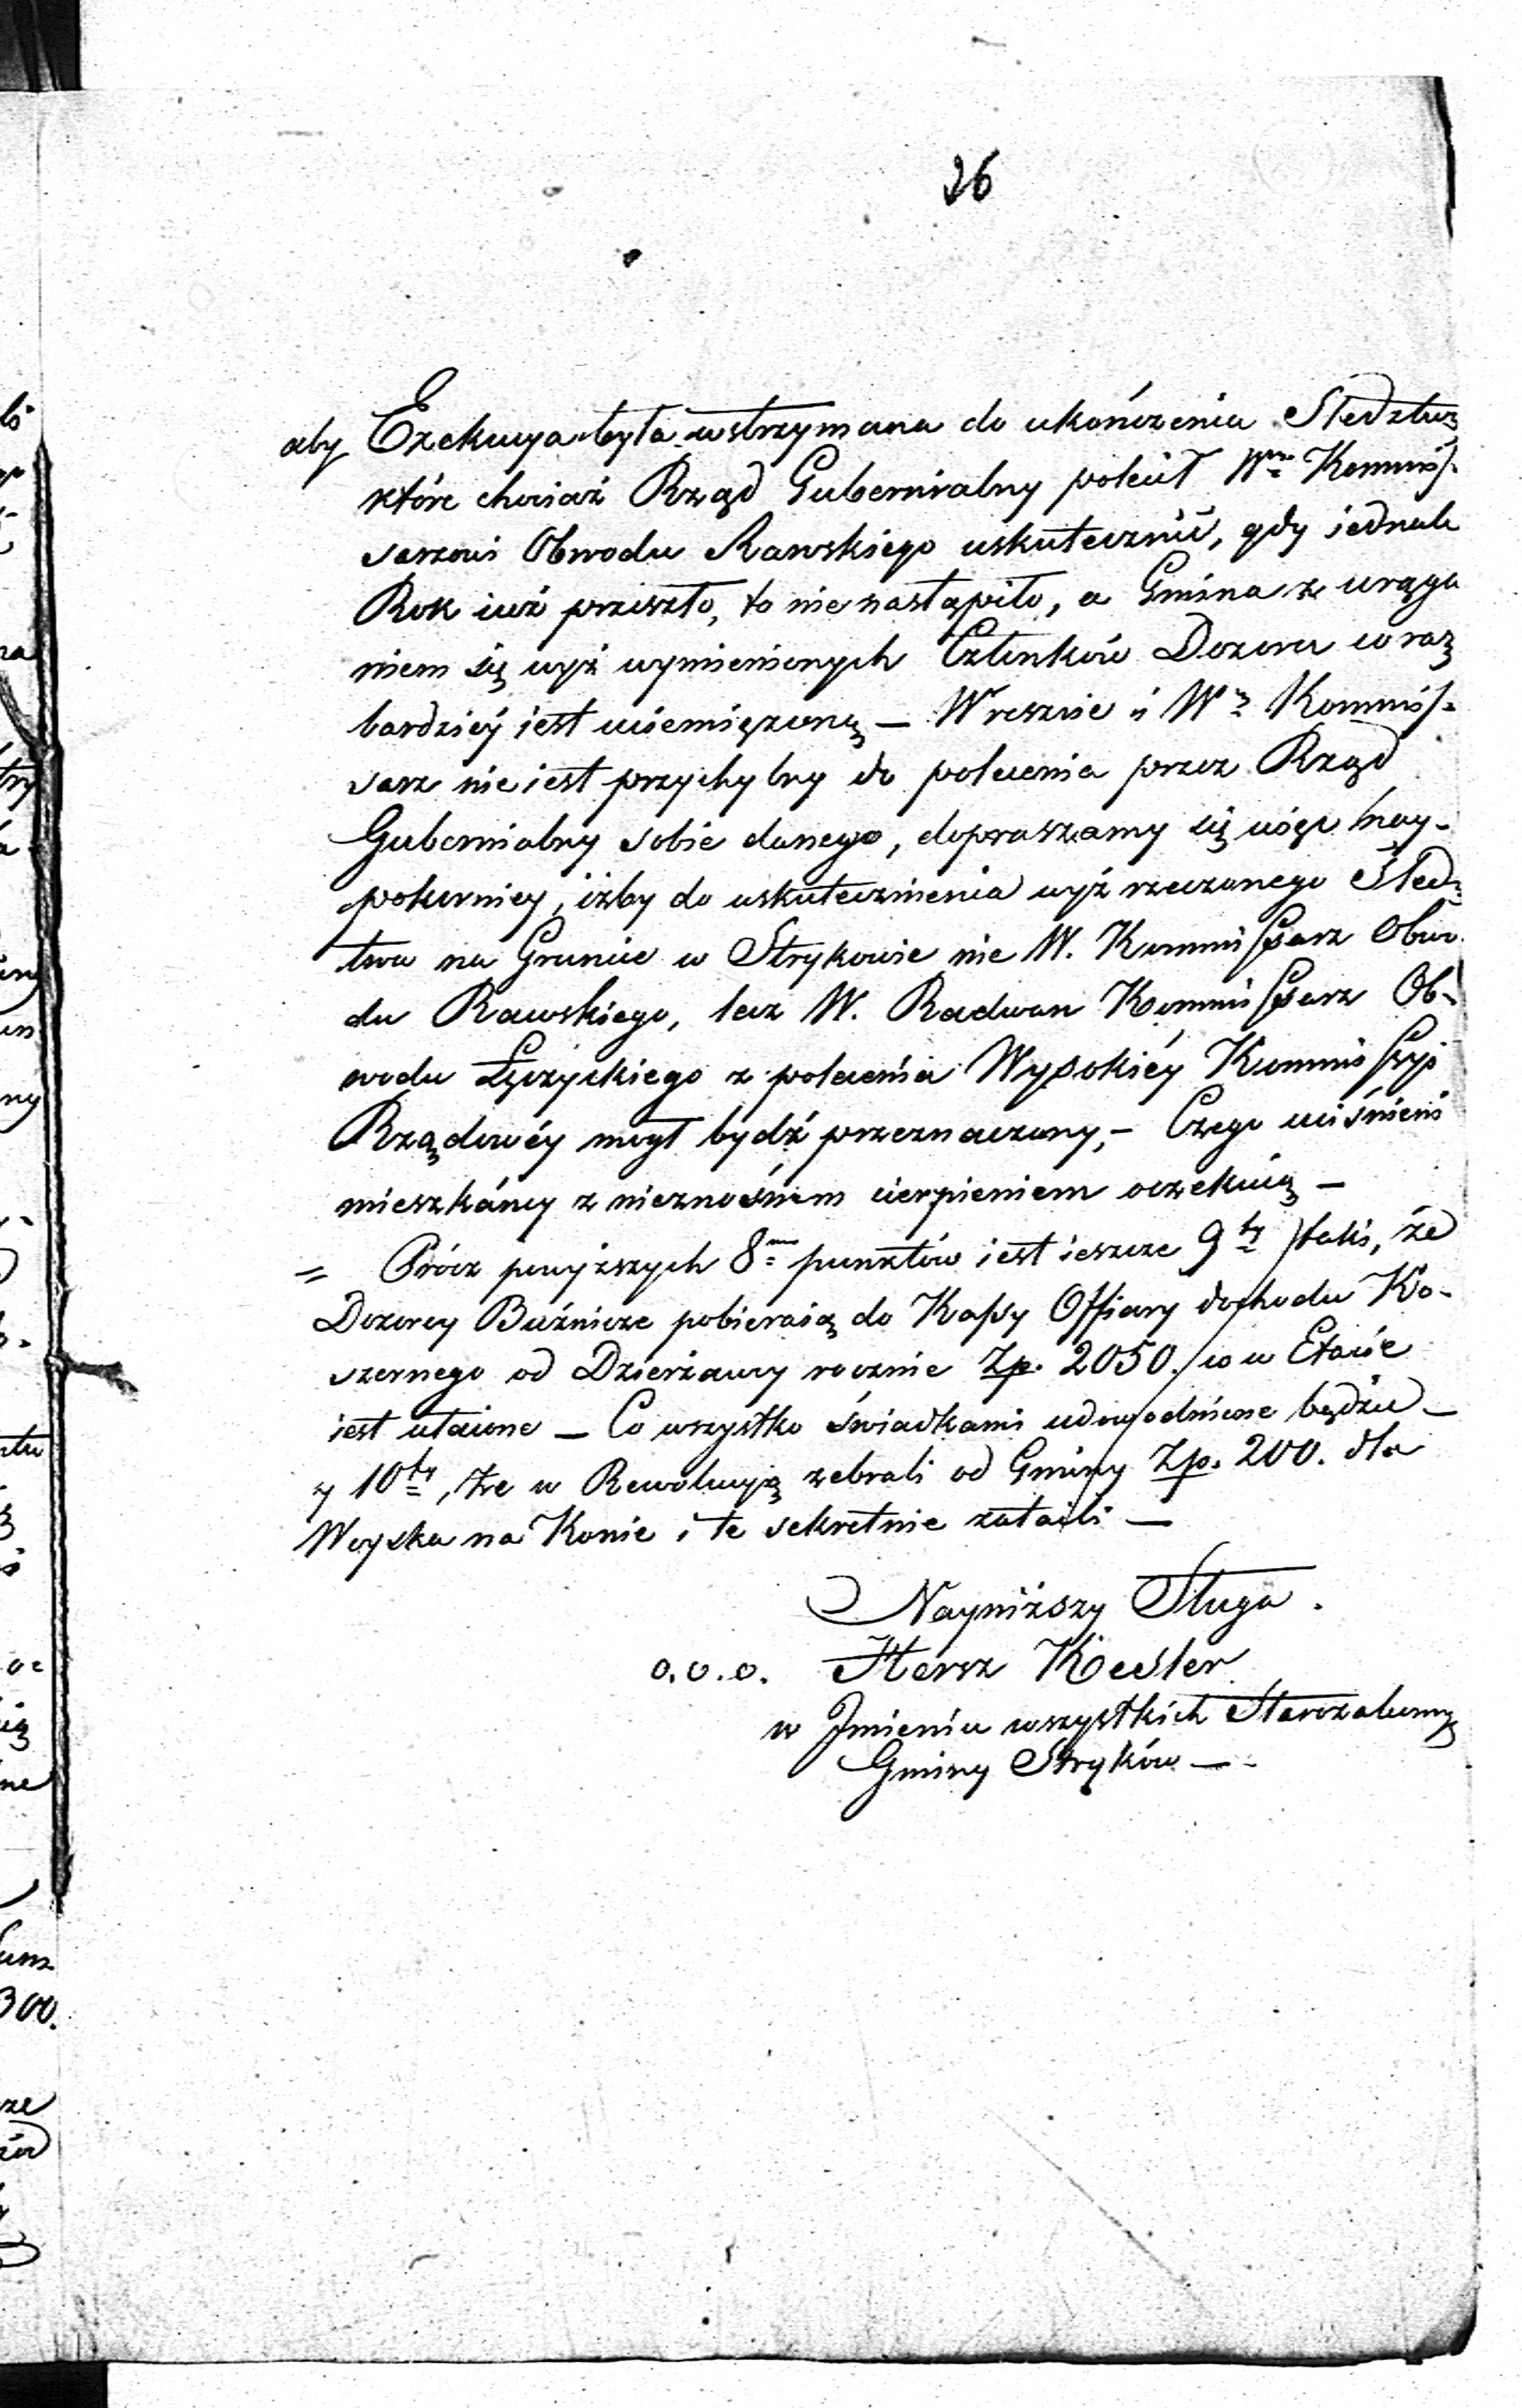 26
aby Exekucya była wstrzymana do ukończenia Sledztwa
które chociaż Rząd Gubernialny polecił Wmu Kommis-
sarzowi Obwodu Rawskiego uskutecznić, gdy iednak
Rok iuż przeszło, to nie nastąpiło, a Gmina z urąga
niem się wyż wymienionych Członków Dozoru coraz
bardziéy iest uciemiężoną — Wreszcie i Wny Kommis-
sarz nie iest przychylny do polecenia przez Rząd
Gubernialny sobie danego, dopraszamy się więc nay-
pokorniey, iżby do uskutecznienia wyż rzeczonego Sledz
twa na Gruncie w Strykowie nie W. Kommissarz Obwo
du Rawskiego, lecz W. Radwan Kommissarz Ob-
wodu Łęczyckiego z polecenia Wysokiéy Kommissyi
Rządowéy mógł bydź przeznaczony, — Czego uciśnieni
mieszkáncy z nieznośnem cierpieniem oczekuią —
= Prócz powyższych 8miu punktów iest ieszcze 9ty taki, że
Dozorcy Bużnicze pobieraią do Kassy Offiary dochodu Ko-
szernego od Dzierżawcy rocznie Zp. 2050. co w Etacie
iest utaione — Co wszystko świadkami udowodnione będzie —
y 10ty, że w Rewolucyą zebrali od Gminy Zp. 200. dla
Woyska na Konie i te sekretnie zataili —
Nayniższy Sługa.
o.o.o. Hersz Kesler
w Jmieniu wszystkich Starozakonny
Gminy Stryków —